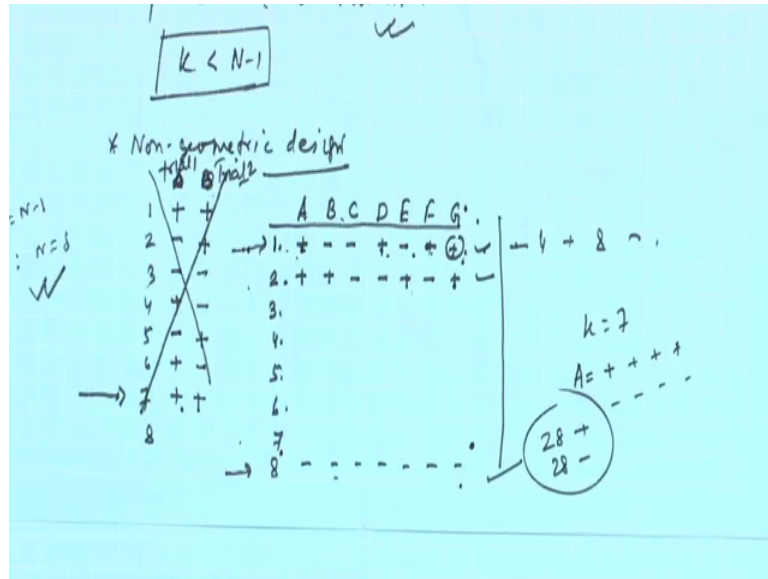 K < N-1
* Non-geometric design
trial1 Trial2
1 + +
2 - +
3 - -
4 + -
5 - +
6 + -
→ 7 + +
8
= N-1
: N=8
A B C D E F G
→ 1. + - - + - + + - 4 + 8 -
2. + + - - + - +
3.
4.
5.
6.
7.
→ 8 - - - - - - -
k=7
A= + + + +
- - - -
28 +
28 -